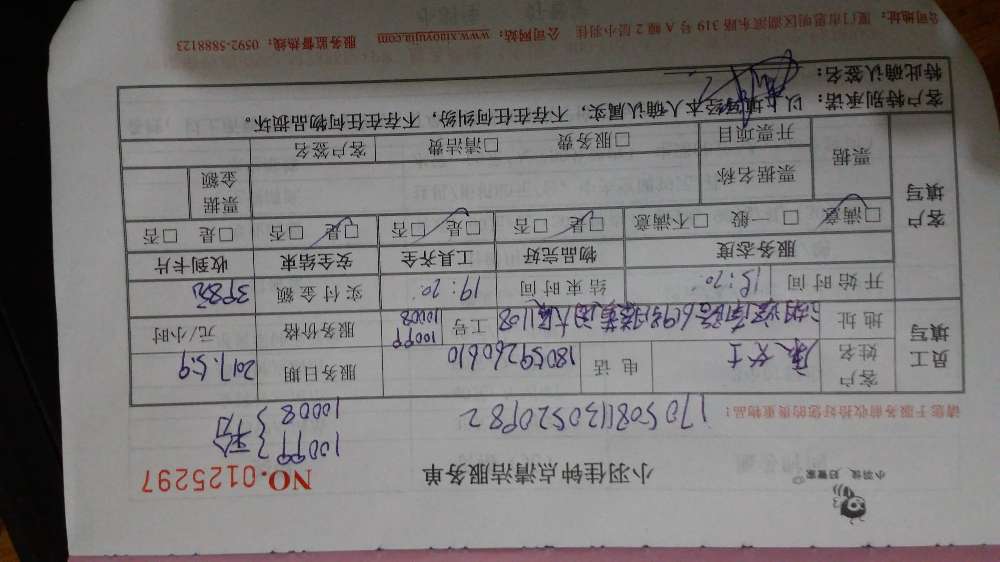 小羽佳 好管家
小羽佳钟点清洁服务单
NO.0125297
1705081130520982
10099
10008
请您于服务前收拾好您的贵重物品:
员工填写
客户姓名
康女士
电话
18059260610
服务日期
2017.5.9
地址
工号
10099
10008
服务价格
元/小时
开始时间
15:20
结束时间
19:20
实付金额
398元
客户填写
服务态度
物品完好
工具齐全
安全结束
收到卡片
□满意 □一般 □不满意
□是 □否
□是 □否
□是 □否
□是 □否
票据
票据名称
票据金额
开票项目
□服务费 □清洁费
客户签名
客户特别承诺:以上填写经本人确认属实,不存在任何纠纷,不存在任何物品损坏。
特此确认签名:
公司地址:厦门市思明区湖滨东路 319 号 A 幢 2 层小羽佳 公司网站:www.xiaoyujia.com 服务监督热线:0592-5888123